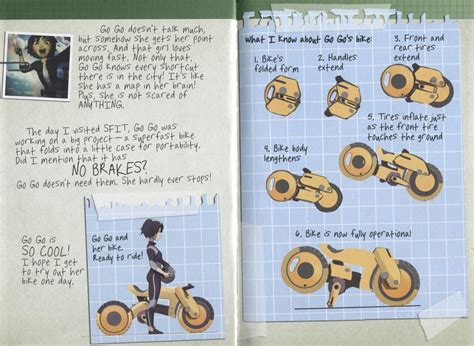 Go Go doesn't talk much,
but somehow she gets her point
across. And that girl loves
moving fast. Not only that,
Go Go knows every shortcut
there is in the city! It's like
she has a map in her brain!
Plus, she is not scared of
ANYTHING.
The day I visited SFIT, Go Go was
working on a big project—a superfast bike
that folds into a little case for portability.
Did I mention that it has
NO BRAKES?
Go Go doesn't need them. She hardly ever stops!
Go Go is
SO COOL!
I hope I get
to try out her
bike one day.
Go Go and
her bike.
Ready to ride!
What I know about Go Go's bike:
1. Bike's
folded form
2. Handles
extend
3. Front and
rear tires
extend
4. Bike body
lengthens
5. Tires inflate just
as the front tire
touches the ground
6. Bike is now fully operational